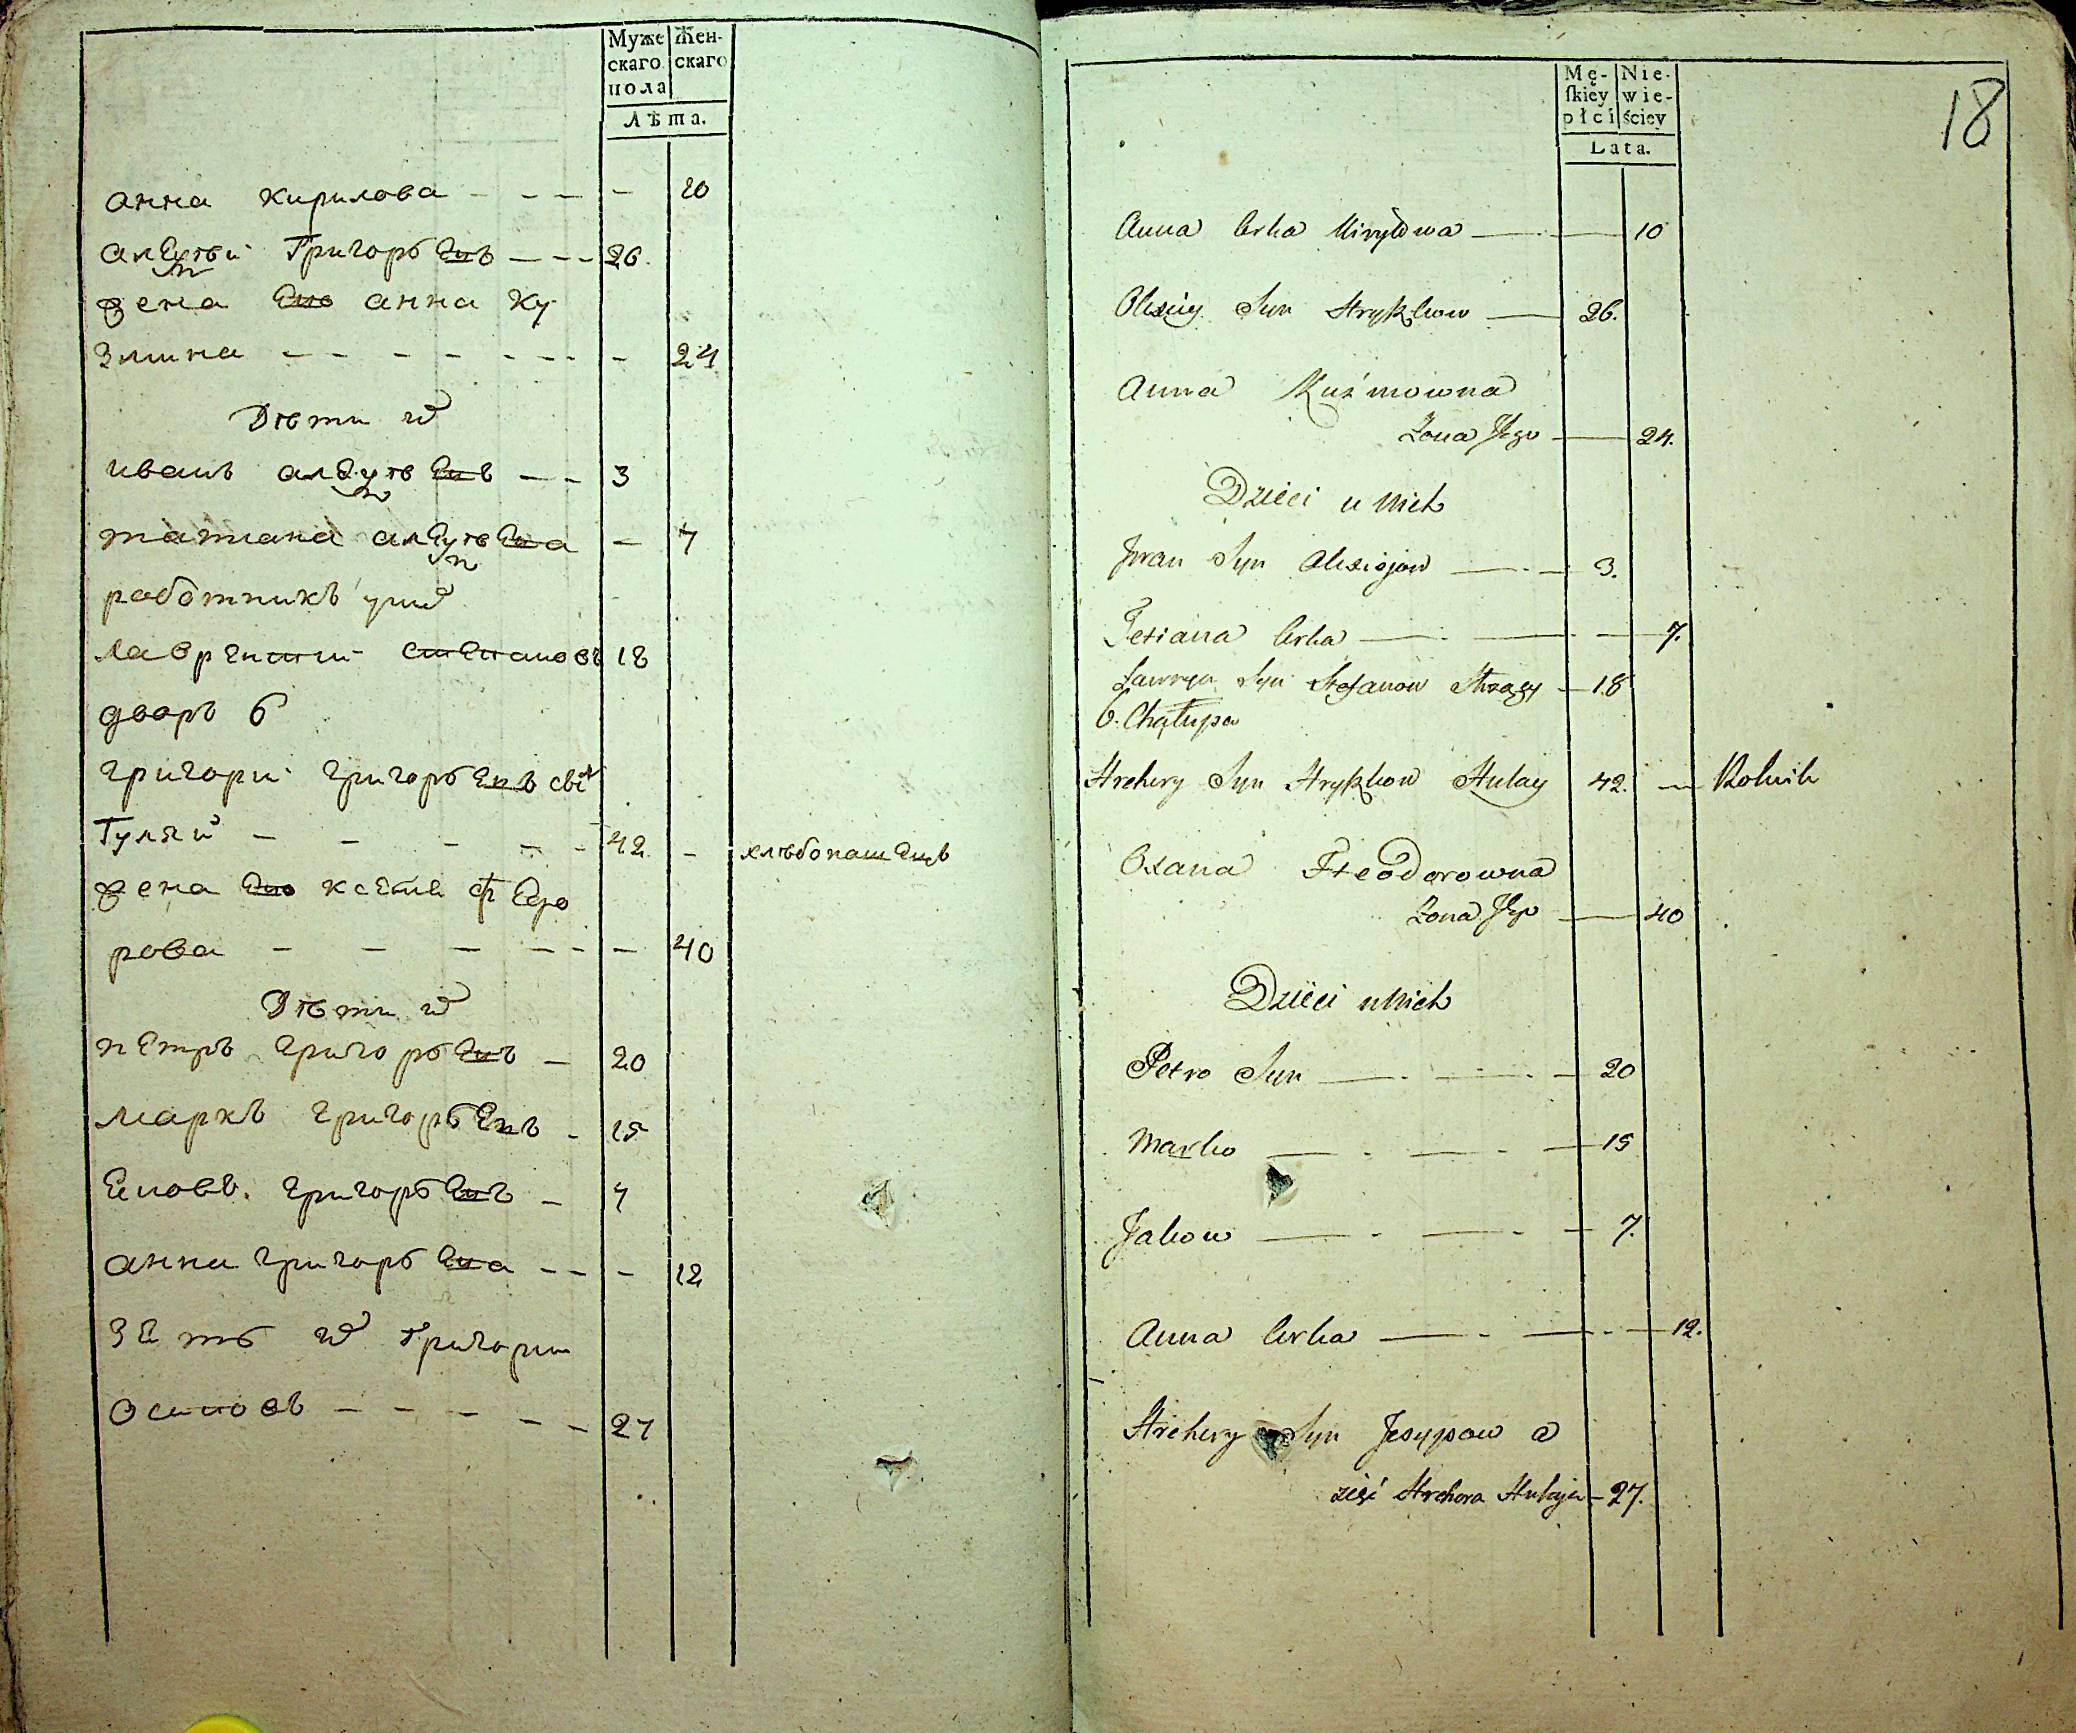 Муже Жен-
скаго скаго
пола
Лѣта.
анна кирилова - - - - 10
алеѯѣй Григорьевъ - - - 26.
жена его анна ку
змина - - - - - - - - 24
Дѣти их
иванъ алеѯѣевъ - - 3
татиана алеѯѣева - 7
работникъ у них
лаврентий степановъ 18
дворъ 6
григорий григорьевъ
Гуляй - - - - - 42. - хлѣбопашецъ
жена его ксения федо
рова - - - - - - 40
Дѣти их
петръ григорьевъ - 20
маркъ григорьевъ - 15
григорьевъ - 7
анна григорьева - - - 12
зеть их григорий
осиповъ - - - - - 27
18
Mę- Nie-
ſkiey wie-
płci ściey
Lata.
Anna Crka Kiryłowa 10
Olexiey Syn Hryhkow 26.
Anna Kuźmowna
Żona Jego 24.
Dzieci u Nich
Jwan Syn Olexiojow 3.
Tetiana Crka 7.
Ławryn Syn Stefanow Słuzący 18
6. Chałupa
Hrehory Syn Hryhkow Hulay 42. Rolnik
Oxana Fteodorowna
Żona Jego 40
Dzieci u Nich
Petro Syn 20
Marko 15
Jakow 7.
Anna Crka 12.
Hrehory Syn Jesypow a
zięć Hrehora Hulaja - 27.